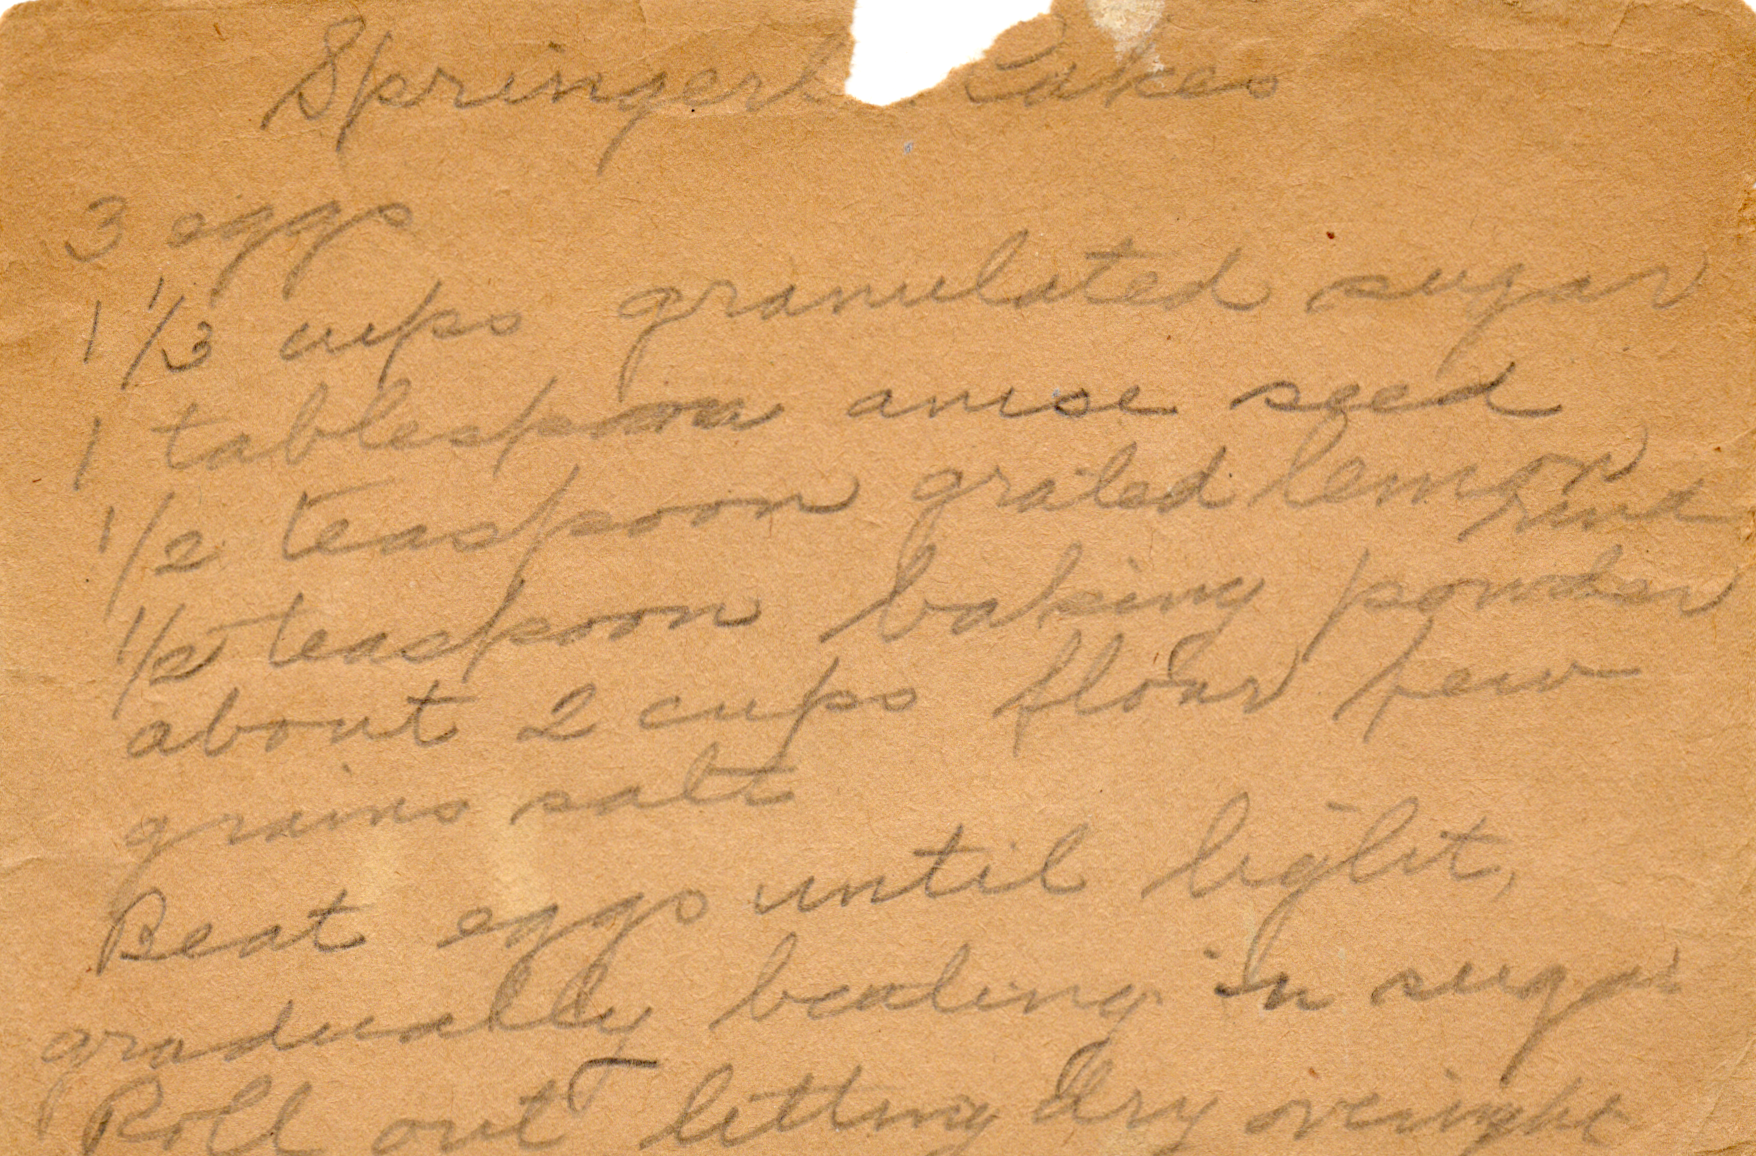 Springerl Cakes
3 eggs
1 1/3 cups granulated sugar
1 tablespoon anise seed
1/2 teaspoon grated lemon
rind
1/2 teaspoon baking powder
about 2 cups flour few
grains salt
Beat eggs until light,
gradually beating in sugar
Roll out letting dry overnight